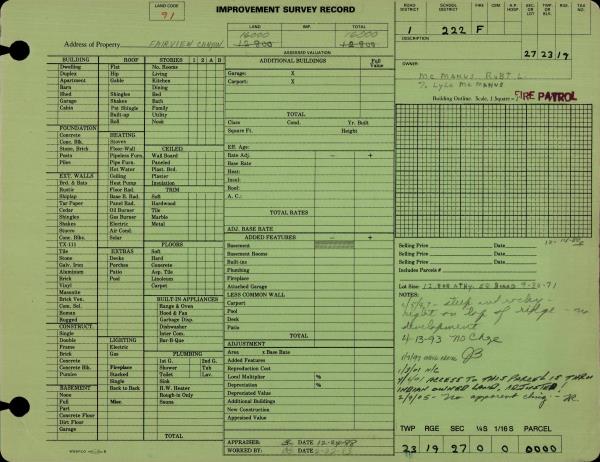 LAND CODE
91
IMPROVEMENT SURVEY RECORD
LAND IMP. TOTAL
16000 16000
12-800 12-800
Address of Property FAIRVIEW CANYON
ASSESSED VALUATION
ROAD DISTRICT SCHOOL DISTRICT FIRE CEM. A.P. HOSP. TWP. OR BLK. SEC. OR LOT RGE. TAX NO.
1 222 F
DESCRIPTION
27 23 19
OWNER:
MC MANUS, ROBT. L.
% LYLE MC MANUS
Building Outline. Scale, 1 Square =
FIRE PATROL
BUILDING ROOF STORIES 1 2 A B
Dwelling Flat No. Rooms
Duplex Hip Living
Apartment Gable Kitchen
Barn Dining
Shed Shingles Bed
Garage Shakes Bath
Cabin Pat Shingle Family
Built-up Utility
Roll Nook
FOUNDATION
Concrete HEATING
Conc. Blk. Stoves
Stone, Brick Floor-Wall CEILED
Posts Pipeless Furn. Wall Board
Piles Pipe Furn. Paneled
Hot Water Plast. Brd.
EXT. WALLS Ceiling Plaster
Brd. & Bats Heat Pump Insulation
Rustic Floor Rad. TRIM
Shiplap Base B. Rad. Soft
Tar Paper Panel Rad. Hardwood
Cedar Oil Burner Tile
Shingles Gas Burner Marble
Shakes Electric Metal
Stucco Air Cond.
Conc. Blks. Solar
TX-111 FLOORS
Tile EXTRAS Soft
Stone Decks Hard
Galv. Iron Porches Concrete
Aluminum Patio Asp. Tile
Brick Pool Linoleum
Vinyl Carpet
Masonite
Brick Ven. BUILT-IN APPLIANCES
Com. Sel. Range & Oven
Roman Hood & Fan
Rugged Garbage Disp.
CONSTRUCT. Dishwasher
Single Inter Com.
Double LIGHTING Bar-B-Que
Frame Electric
Brick Gas PLUMBING
Concrete 1st G. 2nd G.
Conc. Blk. Fireplace Shower Tub
Pumice Stacked Toilet Lav.
Single Sink
BASEMENT Back to Back H.W. Heater
None Rough-in Only
Full Misc. Sauna
Part
Concrete Floor
Dirt Floor
Garage
TOTAL
ADDITIONAL BUILDINGS Full Value
Garage: X
Carport: X
TOTAL
Class Cond. Yr. Built
Square Ft. Height
Eff. Age:
Rate Adj. - +
Base Rate
Heat:
Insul:
Roof:
A. C.:
TOTAL RATES
ADJ. BASE RATE
ADDED FEATURES - +
Basement
Basement Rooms
Built-ins
Plumbing
Fireplace
Attached Garage
LESS COMMON WALL
Carport
Pool
Deck
Patio
TOTAL
ADJUSTMENT
Area x Base Rate
Added Features
Reproduction Cost
Local Multiplier %
Depreciation %
Depreciated Value
Additional Buildings
New Construction
Appraised Value
APPRAISER: DATE 12-24-98
WORKED BY: DATE
Selling Price Date
Selling Price Date
Selling Price Date
Includes Parcels #
Lot Size:
NOTES:
steep and rocky-
right on top of ridge - no
development
4-13-93 No Chge
1/2/01 N/C
ACCESS TO THIS PARCEL IS THRU
INDIAN OWNED LAND, ADJUSTED!
2/9/05 - No apparent chng -
TWP RGE SEC ¼S 1/16 S PARCEL
23 19 27 0 0 0000